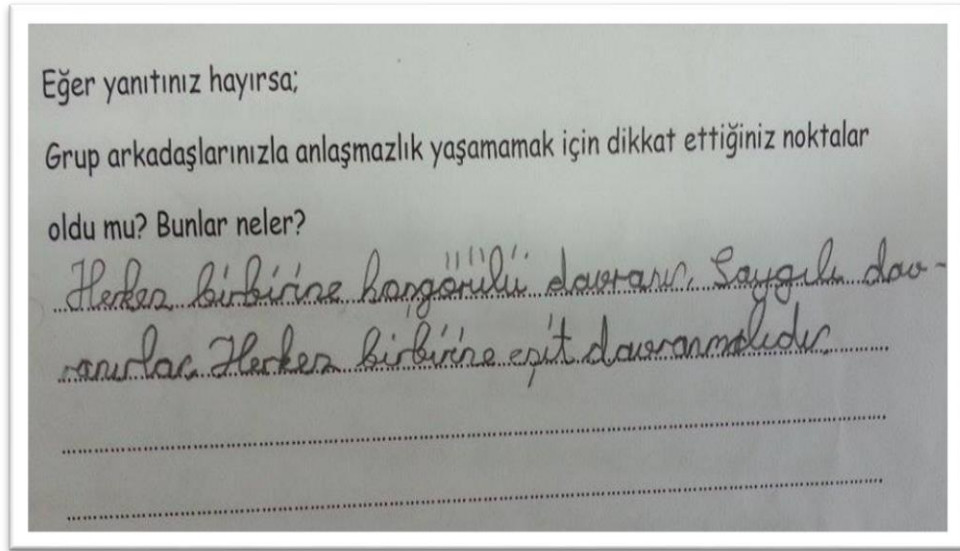 Eğer yanıtınız hayırsa;
Grup arkadaşlarınızla anlaşmazlık yaşamamak için dikkat ettiğiniz noktalar
oldu mu? Bunlar neler?
Herkes birbirine hoşgörülü davranır. Saygılı dav-
ranırlar. Herkes birbirine eşit davranmalıdır.